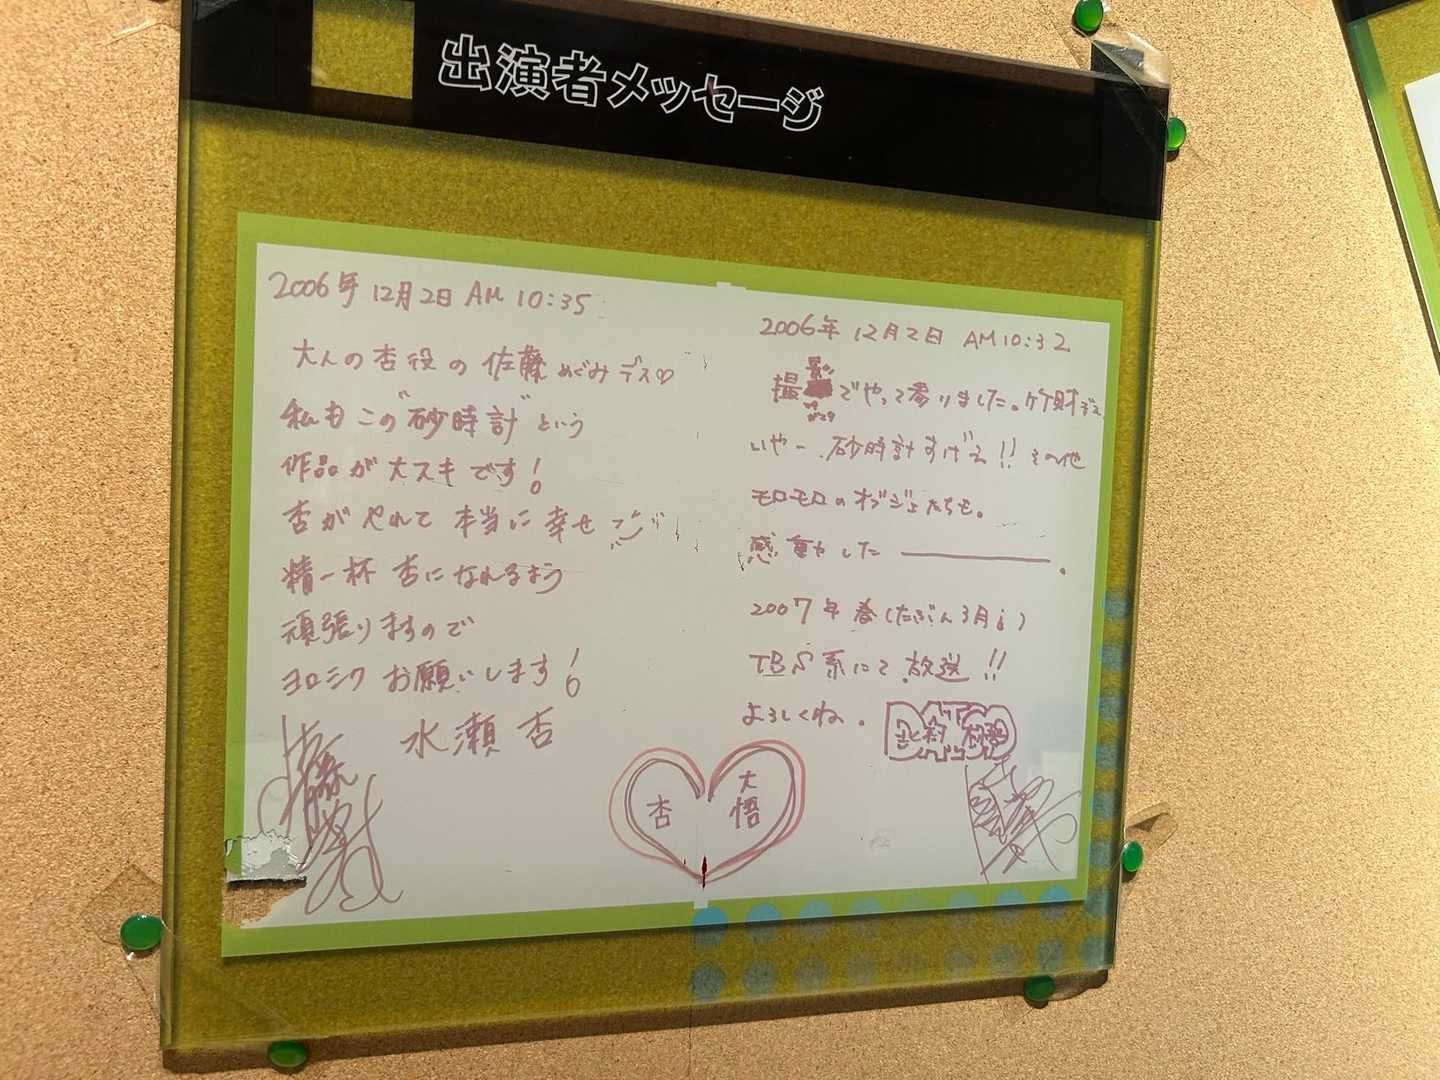 出演者メッセージ
2006年 12月2日 AM 10:35
大人の杏役の 佐藤めぐみデス♡
私も この"砂時計"という
作品が大スキです!
杏がやれて 本当に幸せ
精一杯 杏になれるよう
頑張りますので
ヨロシク お願いします!
水瀬 杏
2006年 12月2日 AM10:32
撮影でやって参りました。竹財です
いやー、砂時計すげえ!! その他
モロモロのオブジェたちも。
感動やした ―――――。
2007年春(たぶん3月)
TBS系にて放送!!
よろしくね。
DAIGO
北村
杏
大悟